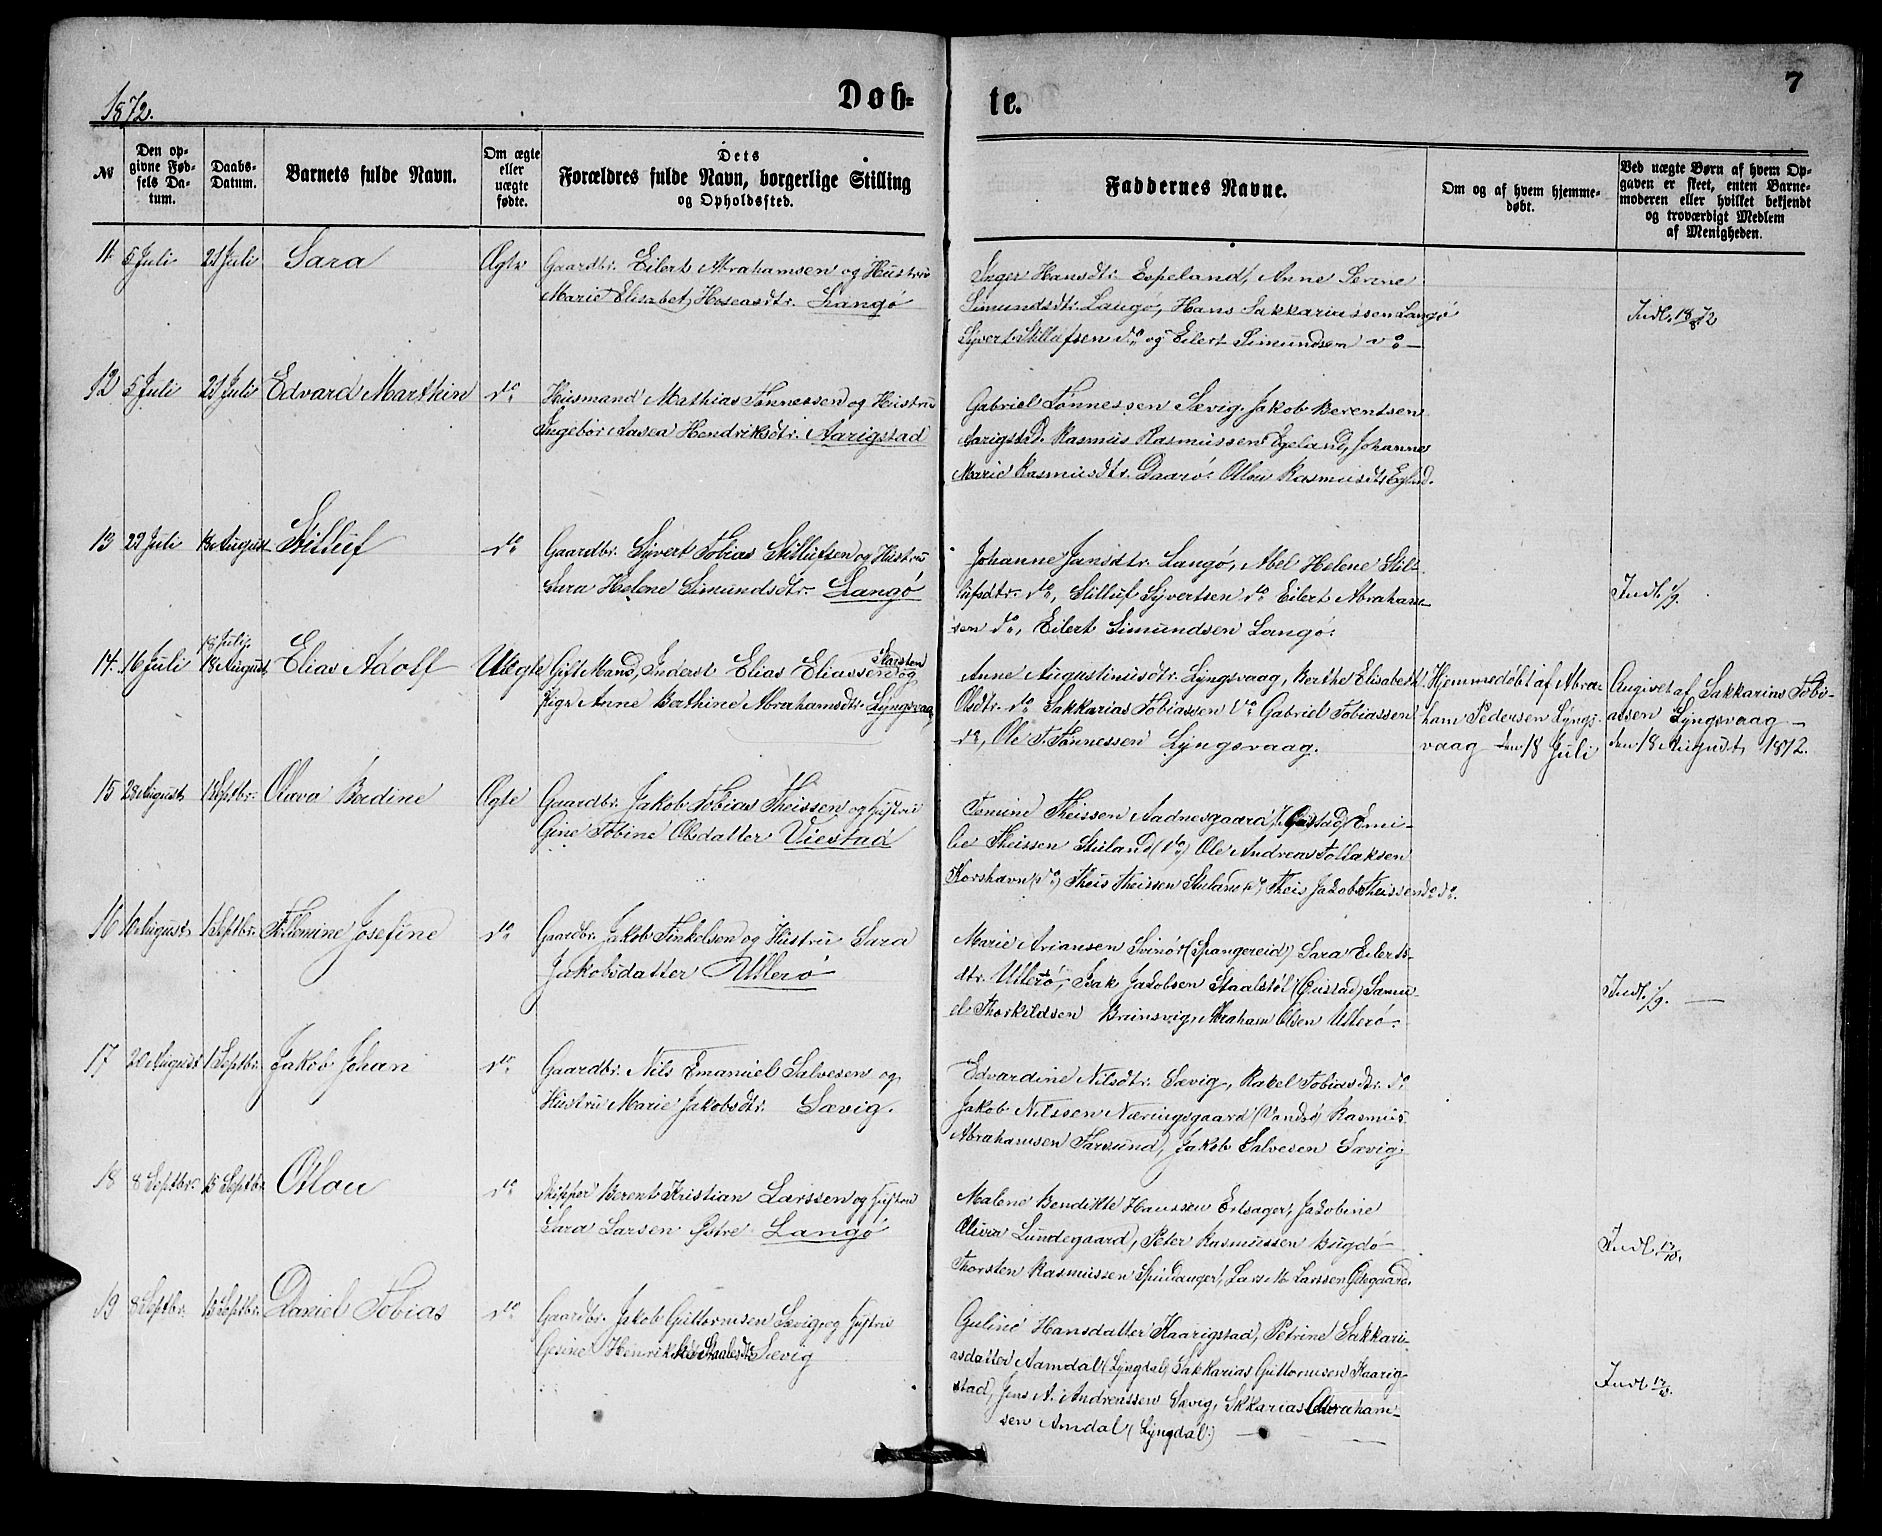 1872.
Døb-
te.
7
№
Den op-
givne Fød-
sels Da-
tum.
Daabs-
Datum.
Barnets fulde Navn.
Om ægte
eller
uægte
fødte.
Dets
Forældres fulde Navn, borgerlige Stilling
og Opholdssted.
Faddernes Navne.
Om og af hvem hjemme-
døbt.
Ved uægte Børn af hvem Op-
gaven er skeet, enten Barne-
moderen eller hvilket bekjendt
og troværdigt Medlem
af Menigheden.
11. 5 Juli 21 Juli Sara Ægte
Gaardbr. Eilert Abrahamsen og Hustru
Marie Elisabet Hoseasdtr. Langø
Inger Hansdtr. Espeland, Anne Serine
Simundsdtr. Langø, Hans Sakkariassen Langø
Syvert Stillufsen do og Eilert Simundsen do —
Indl. 18/8 72
12 5 Juli 21 Juli Edvard Marthin do
Husmand Mathias Tønnessen og Hustru
Ingebor Aasea Hendriksdtr. Aarigstad
Gabriel Tønnessen Sævig, Jakob Berentsen
Aarigstad. Rasmus Rasmussen Egeland, Johanne
Marie Rasmusdtr. Daarø. Olou Rasmusdtr. Egland.
13 22 Juli 18 August Stilluf do
Gaardbr. Syvert Tobias Stillufsen og Hustru
Sara Helene Simundsdtr. Langø
Johanne Jansdtr. Langø, Abel Helene Stil-
lufsdtr. do, Stilluf Syvertsen do Eilert Abraham-
sen do, Eilert Simundsen Langø.
Indl. 1/9.
14. 16 Juli 18 Juli 18 August Elias Adolf Uægte
Gift Mand, Inderst Elias Eliassen og
Pige Anne Berthine Abrahamsdtr. Lyngsvaag
Anne Augustinusdtr. Lyngsvaag, Berthe Elisabeth
Olsdtr. do Sakkarias Tobiassen do Gabriel Tobiassen
do, Ole T. Tønnessen Lyngsvaag.
Hjemmedøbt af Abra-
ham Pedersen Lyngs-
vaag den 18 Juli
Angivet af Sakkarias Tobi-
assen Lyngsvaag —
den 18 August 1872.
15 28 August 1 Septbr. Olava Berdine Ægte
Gaardbr. Jakob Tobias Theissen og Hustru
Gine Tobine Olsdatter Viestad
Tomine Theissen Aadnesgaard, Emi-
lie Theissen (do) Ole Andreas Tollaksen
Korshavn (do) Theis Theissen Theis Jakob Theissen do do.
16 16 August 1 Septbr. Tellemine Josefine do
Gaardbr. Jakob Tinkelsen og Hustru Sara
Jakobsdatter Ullerø
Marie Ariansen Svinør (Spangereid) Sara Eilerts-
dtr. Ullerø, Isak Jakobsen Staalstøl Samu-
el Thorkildsen Brunsvig, Abraham Olsen Ullerø.
Indl. 1/9. —
17 20 August 1 Septbr. Jakob Johan do
Gaardbr. Nils Emanuel Salvesen og
Hustru Marie Jakobsdtr. Sævig.
Edvardine Nilsdtr. Sævig, Rakel Tobiasdtr. do
Jakob Nilssen Næringsgaard (Vandsø) Rasmus
Abrahamsen Farsund, Jakob Salvesen Sævig.
18 8 Septbr. 15 Septbr. Olou do
Skipper Berent Kristian Larssen og Hustru
Sara Larsen Østre Langø
Malene Bendikte Hanssen Jakobine
Olivia Lundegaard, Peter Rasmussen Bugdø
Thorsten Rasmussen Spindanger, Lars M. Larssen Ødegaard.
Indl. 12/10.
19 8 Septbr. 15 Septbr. Daniel Tobias do
Gaardbr. Jakob Guttormsen Sævig og Hustru
Gesine Sævig
Guline Hansdatter Kaarigstad, Petrine Sakkari-
asdatter Aamdal (Lyngdal) Sakkarias Guttormsen Kaarig-
stad, Jens A. Andreassen Sævig, Skkarias Abraham-
sen Amdal (Lyngdal)
Indl.